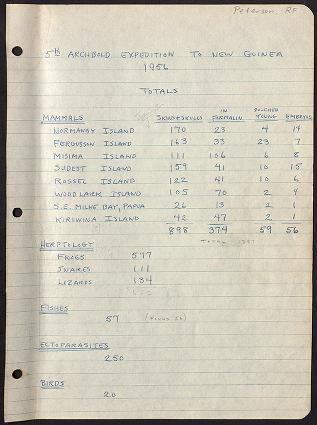 Peterson RF
5th ARCHBOLD EXPEDITION TO NEW GUINEA
1956
TOTALS
MAMMALS SKINS+SKULLS IN FORMALIN POUCHED YOUNG EMBRYOS
NORMANBY ISLAND 170 23 4 14
FERGUSSON ISLAND 163 33 23 7
MISIMA ISLAND 111 106 6 8
SUDEST ISLAND 159 41 10 15
ROSSEL ISLAND 122 41 10 6
WOODLARK ISLAND 105 70 2 4
S.E. MILNE BAY, PAPUA 26 13 2 1
KIRIWINA ISLAND 42 47 2 1
898 374 59 56
TOTAL 1387
HERPTOLOGY
FROGS 577
SNAKES 111
LIZARDS 134
FISHES
57
ECTOPARASITES
250
BIRDS
20